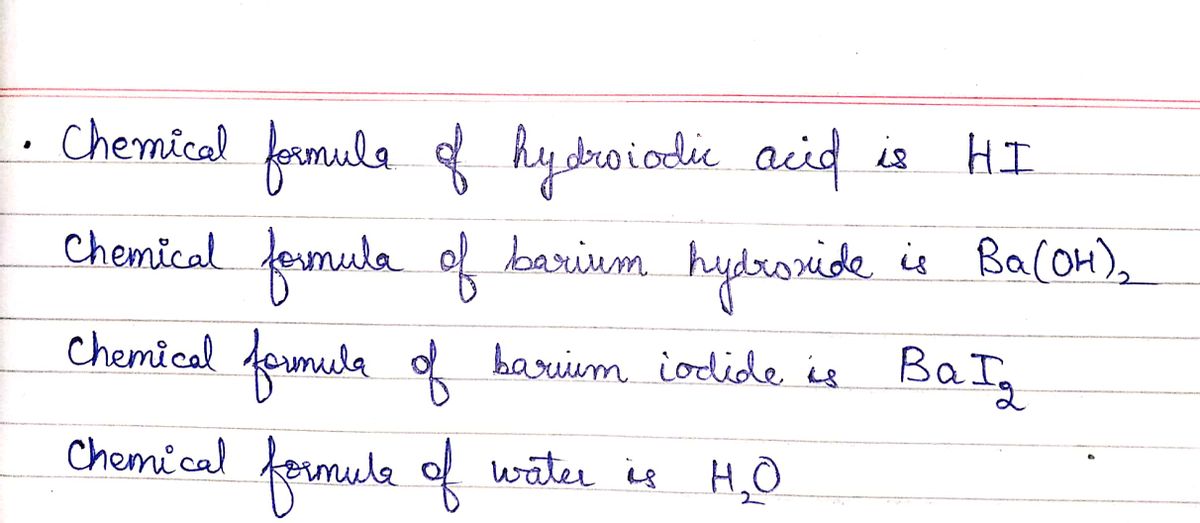 . Chemical formula of hydroiodic acid is HI
Chemical formula of barium hydroxide is Ba(OH)₂
Chemical formula of barium iodide is BaI₂
Chemical formula of water is H₂O